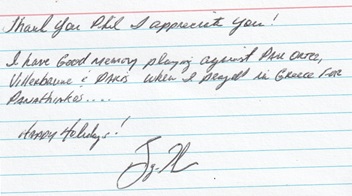 Thank you Phil I appreciate you!
I have Good memory playing against Pau Ortez,
Villeurbanne & Paris when I played in Greece for
Panathinaikos....
Happy Holidays!